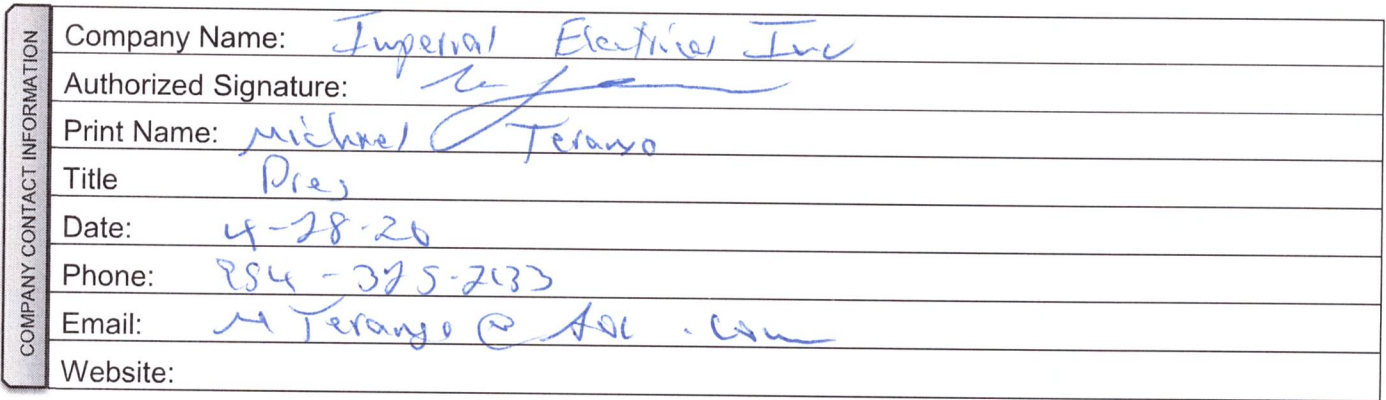 COMPANY CONTACT INFORMATION
Company Name: Imperial Electrical Inc
Authorized Signature:
Print Name: Michael Teranyo
Title Pres
Date: 4-28-20
Phone: 954
Email: @ AOL . Com
Website: